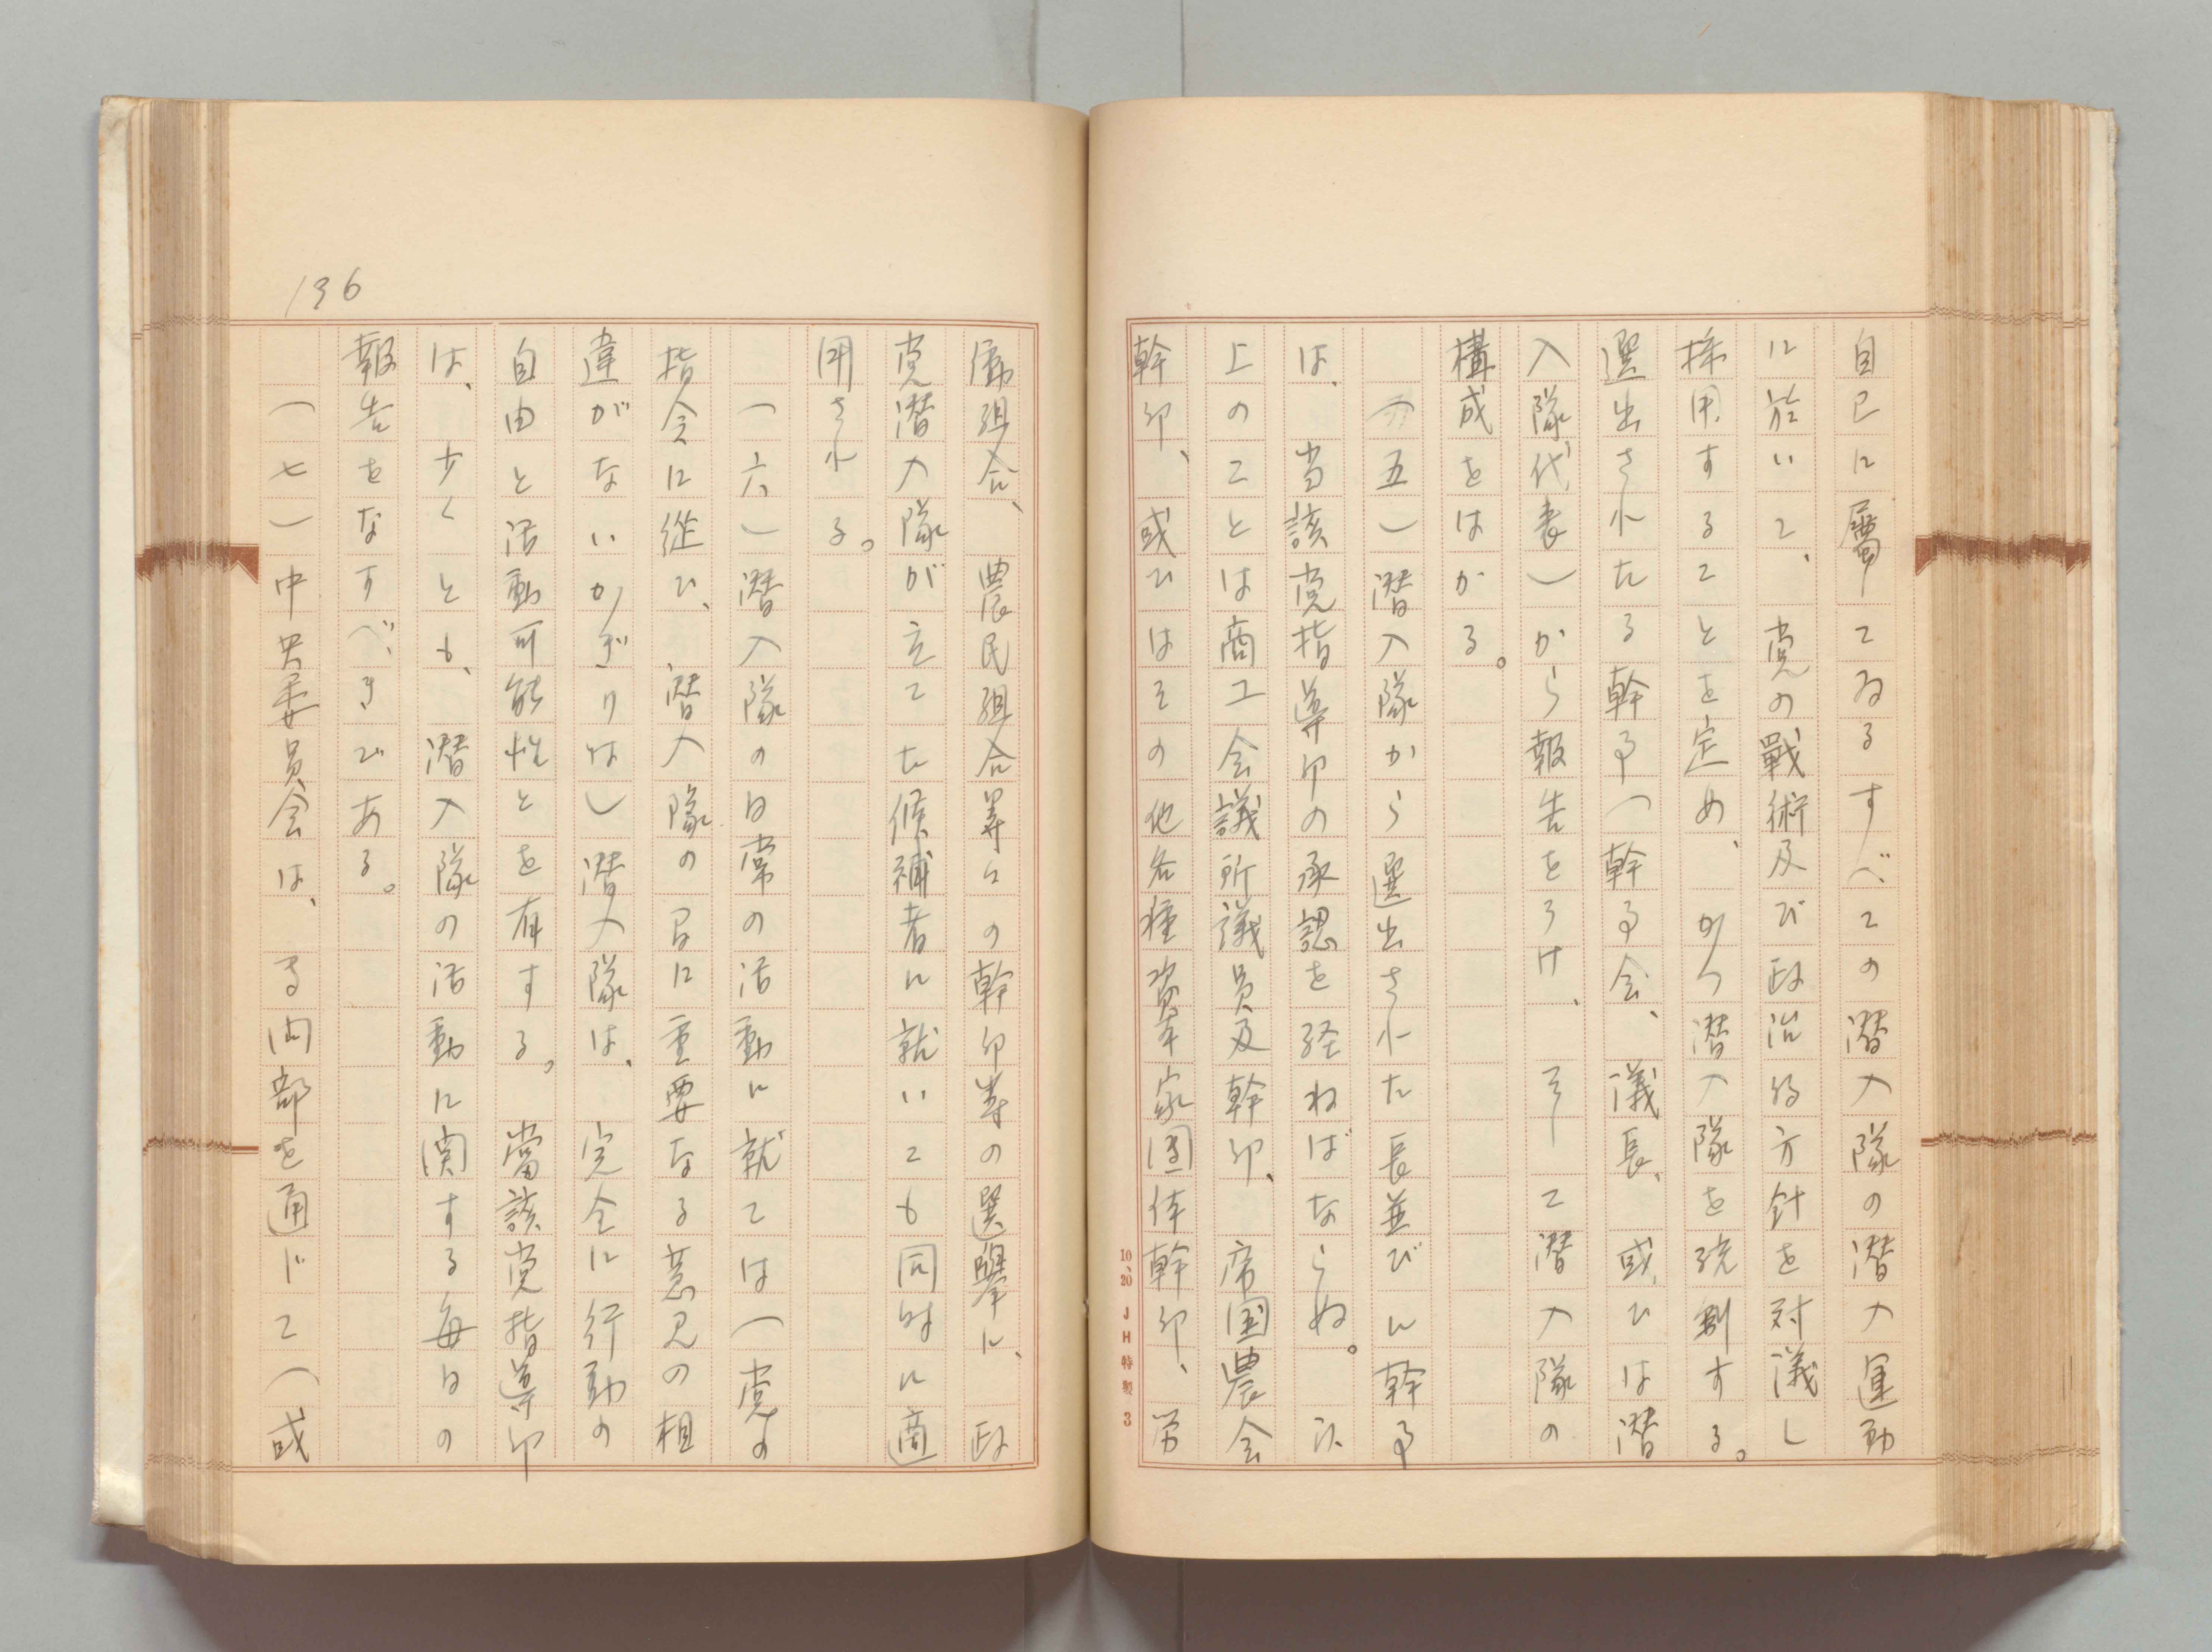 自己に屬てゐるすべての潜入隊の潜入運動
に於いて、党の戰術及び政治的方針を対議し
採用することを定め、かつ潜入隊を統制する。
選出されたる幹事（幹事会、議長、或ひは潜
入隊代表）から報告をうけ、そして潜入隊の
構成をはかる。
（五）潜入隊から選出された長並びに幹事
は、当該党指導部の承認を経ねばならぬ。以
上のことは商工会議所議員及幹部、帝国農会
幹部、或ひはその他各種資本家団体幹部、労
働組合、農民組合等々の幹部等の選擧に、政
党潜入隊が立てた候補者に就いても同時に適
用される。
（六）潜入隊の日常の活動に就ては（党の
指令に從ひ、潜入隊の間に重要なる意見の相
違がないかぎりは）潜入隊は、完全に行動の
自由と活動可能性とを有する。當該党指導部
は、少くとも、潜入隊の活動に関する毎日の
報告をなすべきである。
（七）中央委員会は、その内部を通じて（或
136
10、20 JH特製 3